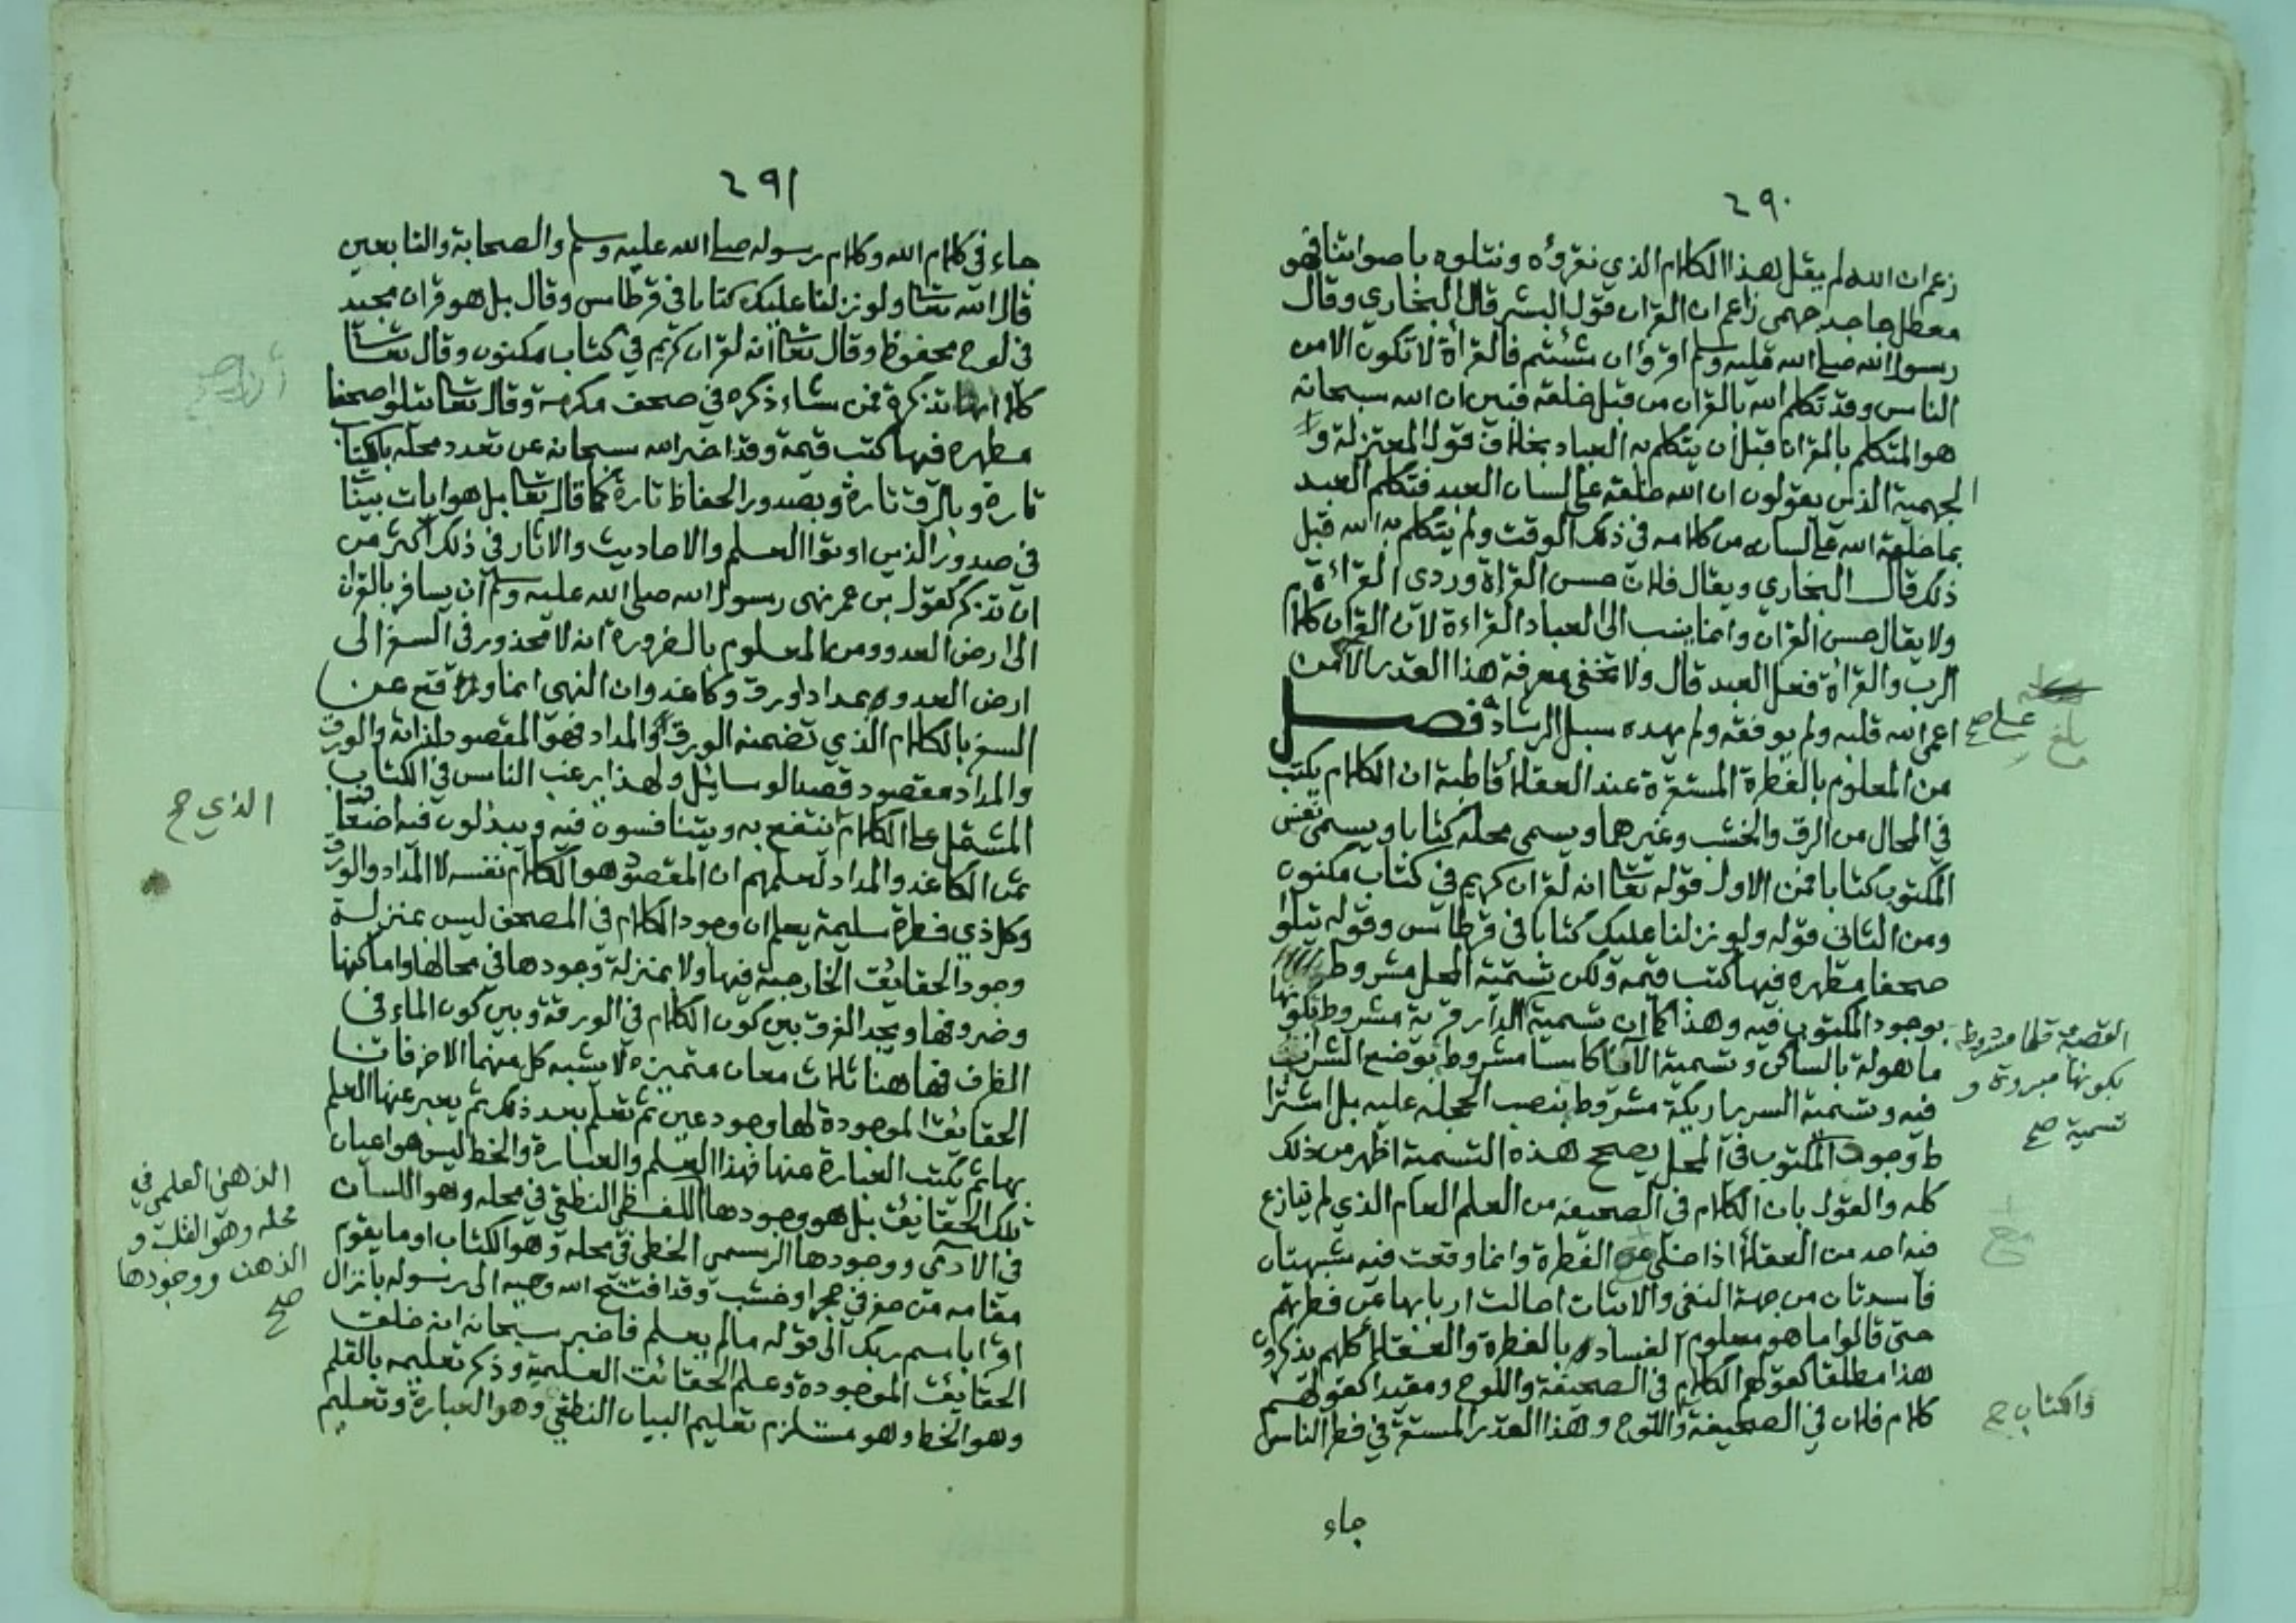 ٢٩٠
زعم ان الله لم يقل هذا الكلام الذي نقرؤه ونتلوه باصواتنا فهو
معطل جاحد جهمي زاعم ان القران قول البشر قال البخاري وقال
رسول الله صلى الله عليه وسلم اقرؤا ان شئتم فالقرأة لا تكون الا من
الناس وقد تكلم الله بالقران من قبل خلقه فبين ان الله سبحانه
هو المتكلم بالقران قبل ان يتكلم به العباد بخلاف قول المعتزلة و
الجهمية الذين يقولون ان الله خلقه على لسان العبد فتكلم العبد
بما خلقه الله على لسانه من كلامه في ذلك الوقت ولم يتكلم به الله قبل
ذلك قال البخاري ويقال فلان حسن القرأة وردي القراءة
ولا يقال حسن القران وانما ينسب الى العباد القراءة لان القران كلام
الرب والقرأة فعل العبد قال ولا تخفى معرفة هذا القدر الا من
اعمى الله قلبه ولم يوفقه ولم يهده سبل الرشاد فصل
على صح
بلغ
من المعلوم بالفطرة المستقرة عند العقلاء قاطبة ان الكلام يكتب
في المحال من الرق والخشب وغيرهما ويسمى محله كتابا ويسمى نفس
المكتوب كتابا فمن الاول قوله تعالى انه لقران كريم في كتاب مكنون
ومن الثاني قوله ولو نزلنا عليك كتابا في قرطاس وقوله يتلوا
صحفا مطهره فيها كتب قيمه ولكن تسمية المحل مشروط
بوجود المكتوب فيه وهذا كما ان تسمية الدار قرية مشروط بكونها
القصبة قلما مشروط
بكونها مبروة و
تسمية صح
ماهولة بالساكن وتسمية الاناكاسا مشروط بوضع الشراب
فيه وتسمية السرير اريكة مشروط بنصب الحجله عليه بل اشترا
ط وجود المكتوب في المحل يصحح هذه التسمية اظهر من ذلك
كله والقول بان الكلام في الصحيفه من العلم العام الذي لم ينازع
فيه احد من العقلاء اذا خلي عن الفطرة وانما وقعت فيه شبهتان
فاسدتان من جهة النفي والاثبات احالت اربابها عن فطرتهم
حتى قالوا ما هو معلوم الفساد بالفطرة والعقلاء كلهم يذكرون
هذا مطلقا كقولهم الكلام في الصحيفة واللوح ومقيدا كقولهم
والكتاب صح
كلام فلان في الصحيفة واللوح وهذا القدر المستقر في فطر الناس
جاء
٢٩١
جاء في كلام الله وكلام رسوله صلى الله عليه وسلم والصحابة والتابعين
قال الله تعالى ولو نزلنا عليك كتابا في قرطاس وقال بل هو قران مجيد
في لوح محفوظ وقال تعالى انه لقران كريم في كتاب مكنون وقال تعالى
كلا انها تذكرة فمن شاء ذكره في صحف مكرمة وقال تعالى يتلوا صحفا
مطهره فيها كتب قيمة وقد اخبر الله سبحانه عن تعدد محله بالكتاب
تارة وبالرق تارة وبصدور الحفاظ تارة كما قال تعالى بل هو ايات بينا
في صدور الذين اوتوا العلم والاحاديث والاثار في ذلك اكثر من
ان تذكر كقول بن عمر نهى رسول الله صلى الله عليه وسلم ان يسافر بالقران
الى ارض العدو ومن المعلوم بالضرورة انه لا محذور في السفر الى
ارض العدو بمداد وورق وكاغد وان النهي انما وقع عن
السفر بالكلام الذي تضمنه الورق والمداد فهو المقصود لذاته والورق
والمداد مقصود قصد الوسائل ولهذا يرغب الناس في الكتاب
المشتمل على الكلام ينتفع به ويتنافسون فيه ويبذلون فيه اضعاف
الذي صح
ثمن الكاغد والمداد لعلمهم ان المقصود هو الكلام نفسه لا المداد والورق
وكل ذي فطرة سليمة يعلم ان وجود الكلام في المصحف ليس بمنزلة
وجود الحقائق الخارجية فيها ولا بمنزلة وجودها في محالها واماكنها
وضروفها ويجد الفرق بين كون الكلام في الورقة وبين كون الماء في
الظرف فها هنا ثلاث معان متميزه لا يشبه كل منهما الاخر فان
الحقائق الموجودة لها وجود عين ثم تعلم بعد ذلك ثم يعبر عنها العلم
بها ثم يكتب العبارة عنها فهذا العلم والعبارة والخط ليس هو اعيان
تلك الحقائق بل هو وجودها اللفظي النطقي في محله وهو اللسان
الذهني العلمي في
محله وهو القلب و
الذهن ووجودها
صح
في الادمي ووجودها الرسمي الخطي في محله وهو الكتاب او ما يقوم
مقامه من حفر في حجر او خشب وقد افتتح الله وحيه الى رسوله بانزال
اقرا باسم ربك الى قوله ما لم يعلم فاخبر سبحانه انه خلق
الحقائق الموجودة وعلم الحقائق العلمية وذكر تعليمه بالقلم
وهو الخط وهو مستلزم تعليم البيان النطقي وهو العبارة وتعليم